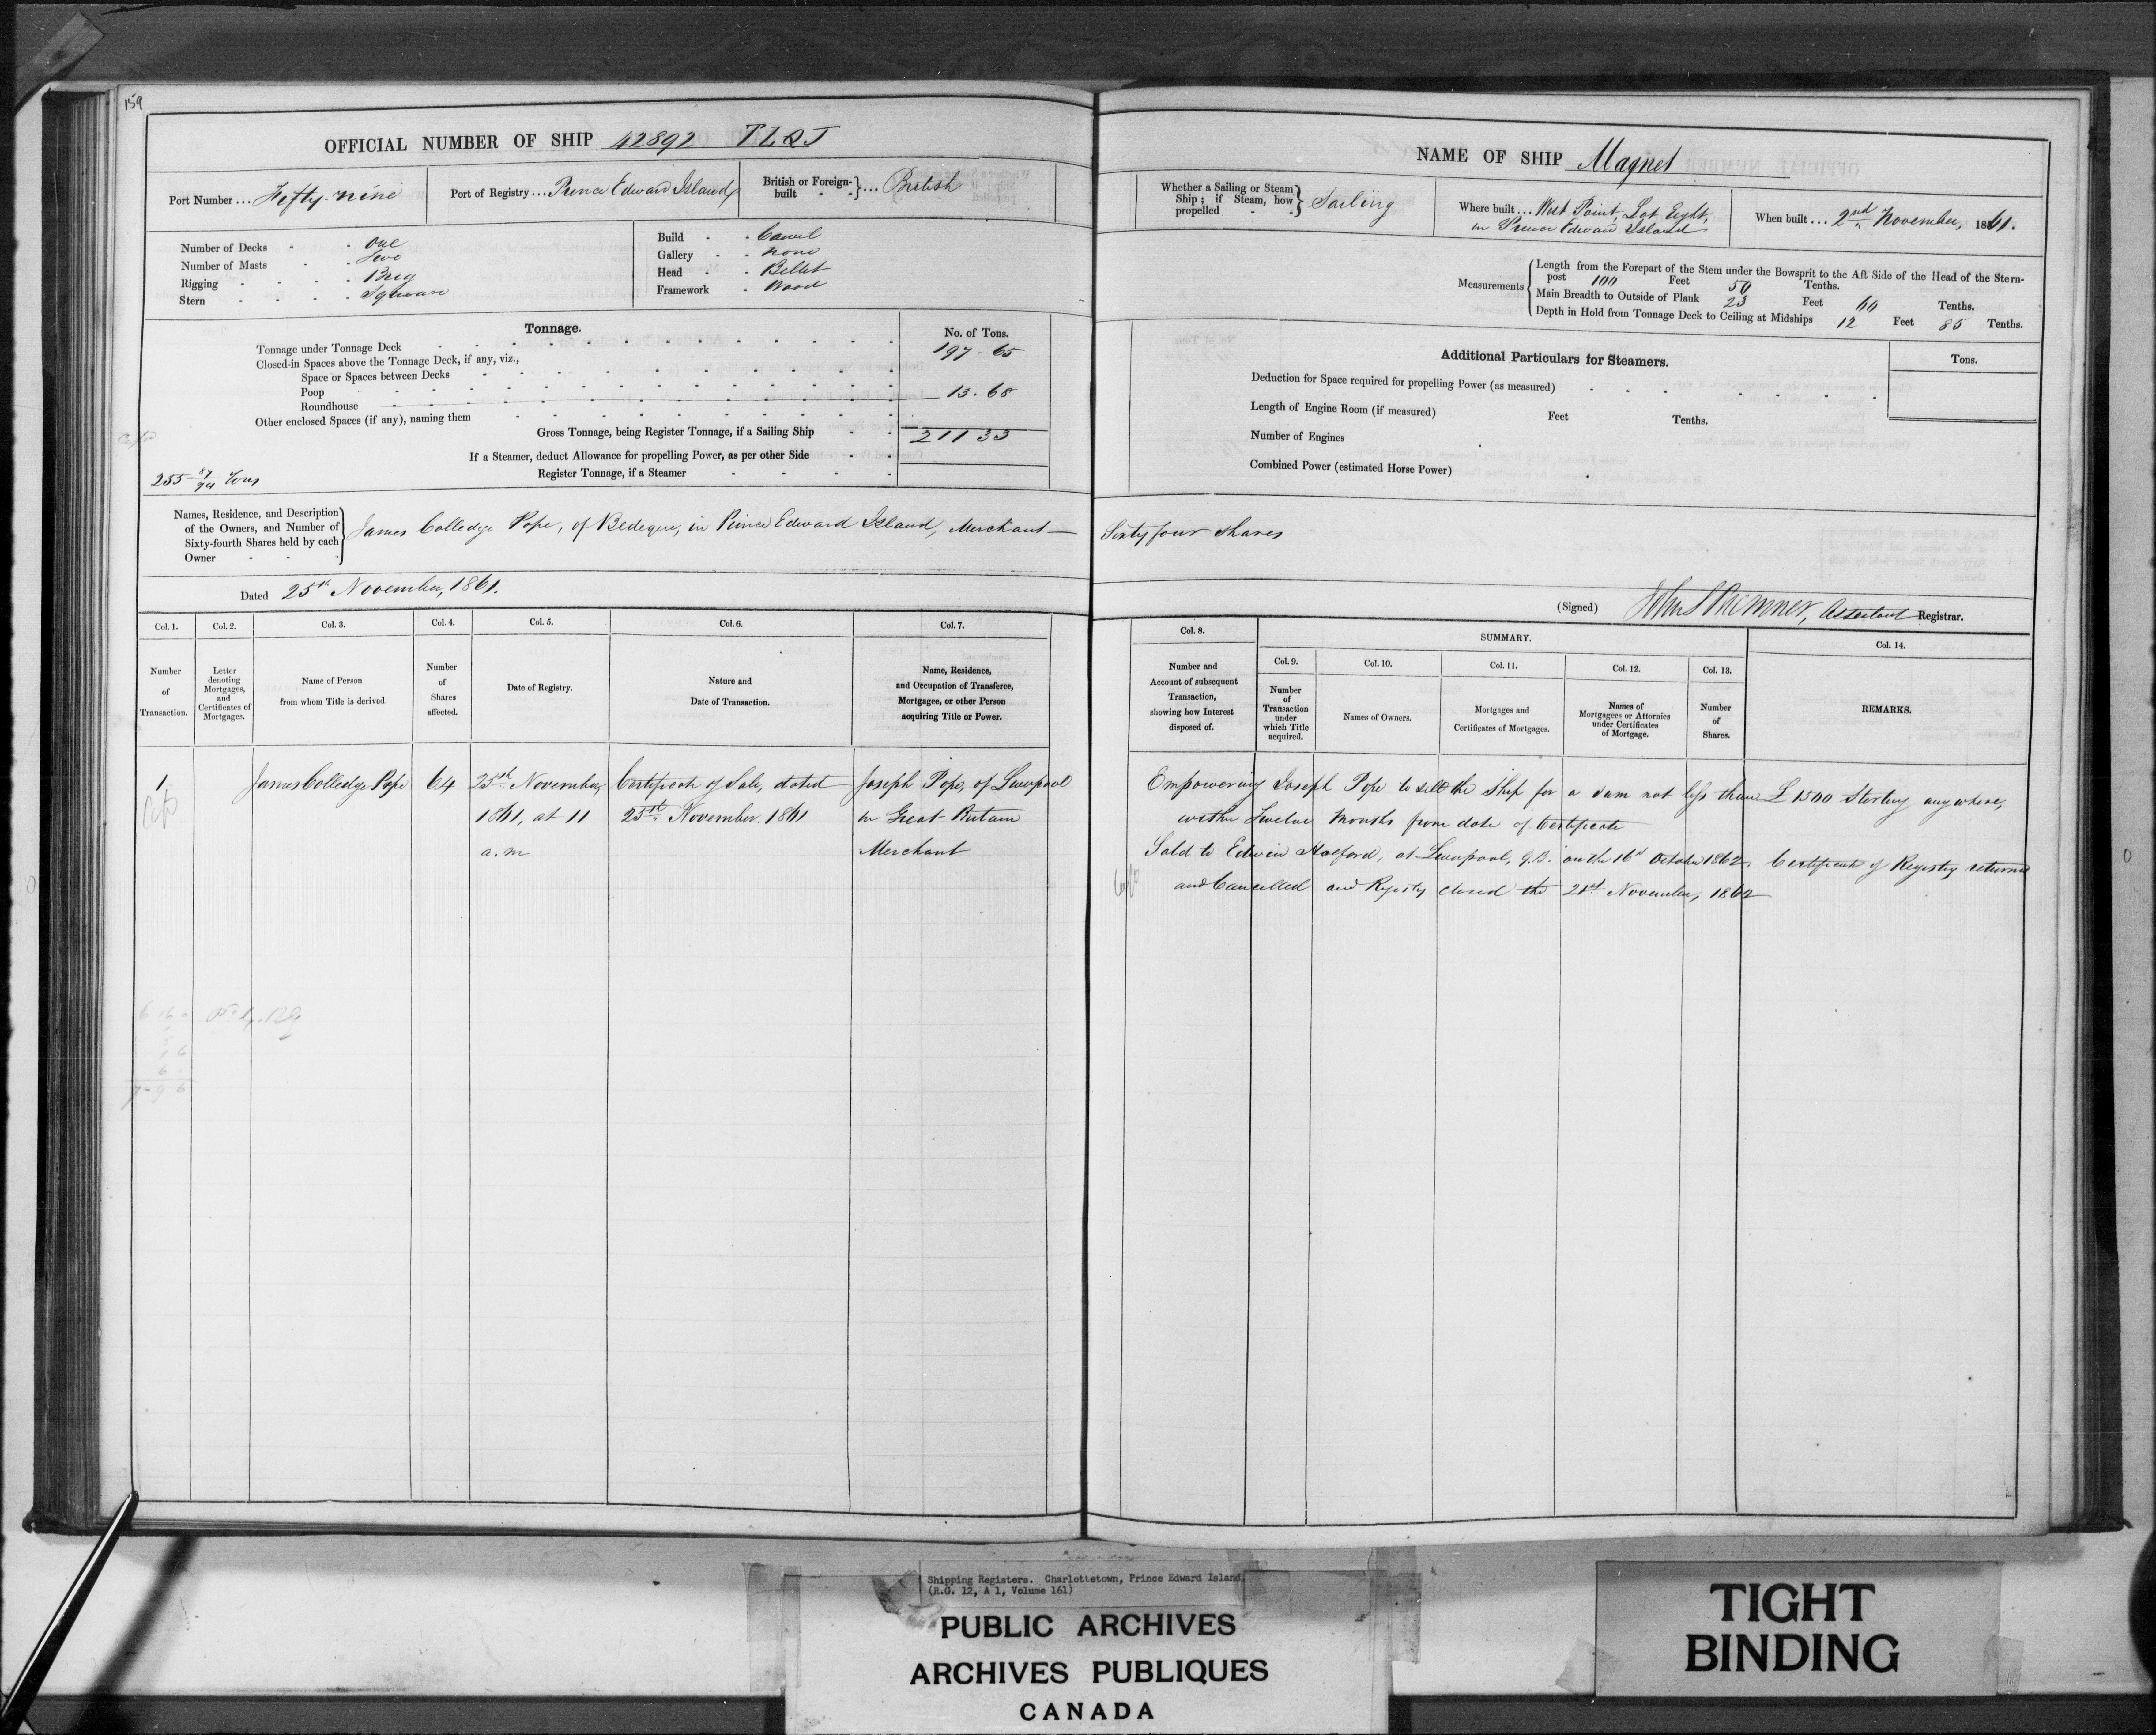 159
OFFICIAL NUMBER OF SHIP 42892 T L Q J
Port Number ... Fifty-nine
Port of Registry ... Prince Edward Island
British or Foreign-built } ... British
Number of Decks - - One
Number of Masts - - Two
Rigging - - - - Brig
Stern - - - - Square
Build - - Carvel
Gallery - - None
Head - - Billet
Framework - Wood
Tonnage.
No. of Tons.
Tonnage under Tonnage Deck 197 - 65
Closed-in Spaces above the Tonnage Deck, if any, viz.,
Space or Spaces between Decks
Poop 13 . 68
Roundhouse
Other enclosed Spaces (if any), naming them
Gross Tonnage, being Register Tonnage, if a Sailing Ship 211 33
If a Steamer, deduct Allowance for propelling Power, as per other Side
255 57/94 Tons
Register Tonnage, if a Steamer
Names, Residence, and Description of the Owners, and Number of Sixty-fourth Shares held by each Owner
James Colledge Pope, of Bedeque, in Prince Edward Island, Merchant —
Dated 25th November, 1861.
Col. 1. Col. 2. Col. 3. Col. 4. Col. 5. Col. 6. Col. 7.
Number of Transaction.
Letter denoting Mortgages, and Certificates of Mortgages.
Name of Person from whom Title is derived.
Number of Shares affected.
Date of Registry.
Nature and Date of Transaction.
Name, Residence, and Occupation of Transferee, Mortgagee, or other Person acquiring Title or Power.
1 James Colledge Pope 64 25th November, Certificate of Sale, dated Joseph Pope, of Liverpool
1861, at 11 25th November 1861 in Great Britain
a.m Merchant
NAME OF SHIP Magnet
Whether a Sailing or Steam Ship; if Steam, how propelled } Sailing
Where built ... West Point, Lot Eight,
in Prince Edward Island
When built ... 2nd November, 1861.
Measurements
Length from the Forepart of the Stem under the Bowsprit to the Aft Side of the Head of the Stern-
post 100 Feet 50 Tenths.
Main Breadth to Outside of Plank 23 Feet 60 Tenths.
Depth in Hold from Tonnage Deck to Ceiling at Midships 12 Feet 85 Tenths.
Additional Particulars for Steamers.
Tons.
Deduction for Space required for propelling Power (as measured)
Length of Engine Room (if measured) Feet Tenths.
Number of Engines
Combined Power (estimated Horse Power)
Sixty four Shares
(Signed) Assistant Registrar.
Col. 8. SUMMARY. Col. 14.
Col. 9. Col. 10. Col. 11. Col. 12. Col. 13.
Number and Account of subsequent Transaction, showing how Interest disposed of.
Number of Transaction under which Title acquired.
Names of Owners.
Mortgages and Certificates of Mortgages.
Names of Mortgagees or Attornies under Certificates of Mortgage.
Number of Shares.
REMARKS.
Empowering Joseph Pope to sell the Ship for a sum not less than £ 1500 Sterling any where,
within Twelve Months from date of Certificate
Sold to Edwin at Liverpool, G.B. on the 16th October 1862. Certificate of Registry returned
and Cancelled and Registry closed the 21st November, 1862
Shipping Registers. Charlottetown, Prince Edward Island.
(R.G. 12, A 1, Volume 161)
PUBLIC ARCHIVES
ARCHIVES PUBLIQUES
CANADA
TIGHT
BINDING